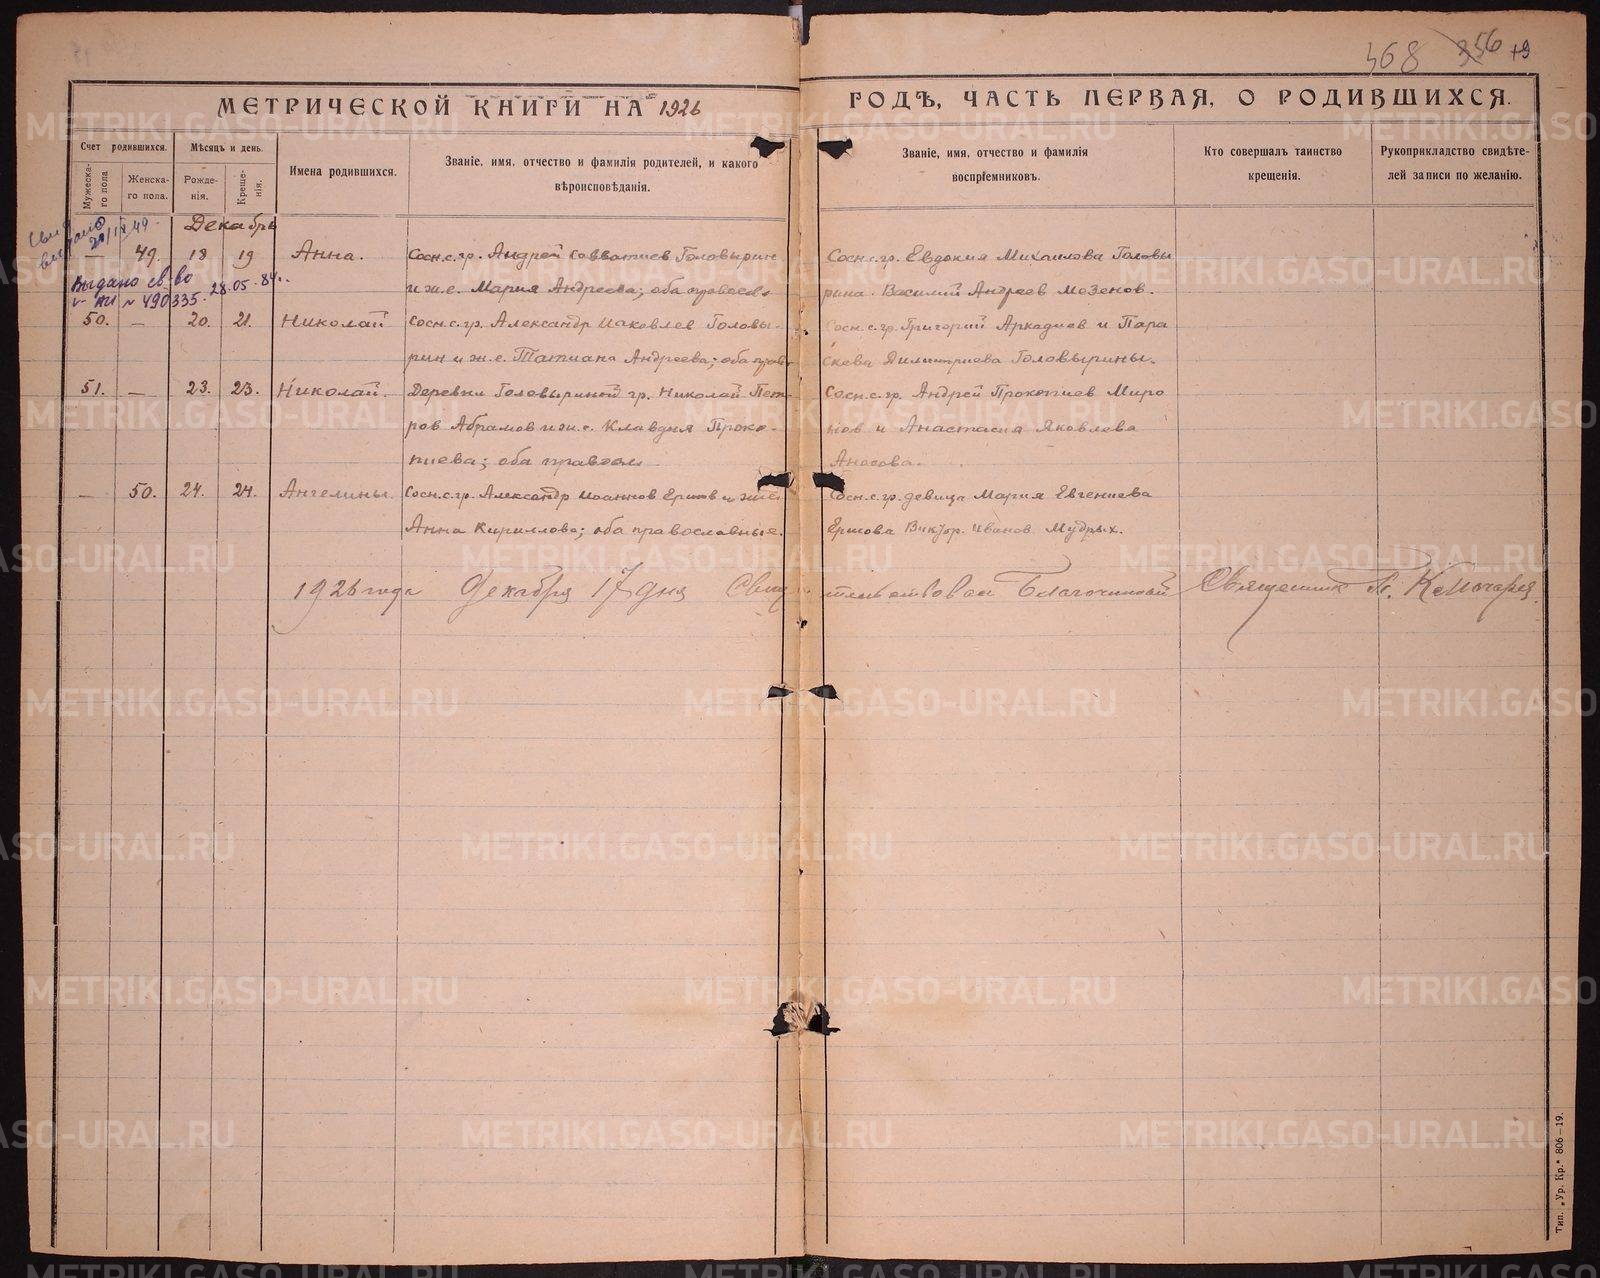 368 356 49
МЕТРИЧЕСКОЙ КНИГИ НА 1926 ГОДЪ, ЧАСТЬ ПЕРВАЯ, О РОДИВШИХСЯ.
Счет родившихся.
Мужеска-
го пола
Женска-
го пола.
Мѣсяцъ и день.
Рожде-
нія.
Креще-
нія.
Имена родившихся.
Званіе, имя, отчество и фамилія родителей, и какого
вѣроисповѣданія.
Званіе, имя, отчество и фамилія
воспріемниковъ.
Кто совершалъ таинство
крещенія.
Рукоприкладство свидѣте-
лей записи по желанію.
Декабрь
— 49. 18 19 Анна. Сосн.с.гр. Андрей Савватиев Головырин Сосн.с.гр. Евдокия Михаилова Головы
и ж.е. Мария Андреева; оба правосл. рина. Василий Андреев Мозенов.
Выдано св-во
№ 490335. 28.05.84г.
50. — 20. 21. Николай Сосн.с.гр. Александр Иаковлев Головы- Сосн.с.гр. Григорий Аркадиев и Пара
рин и ж.е. Татиана Андреева; оба прав. скева Димитриева Головырины.
51. — 23. 23. Николай. Деревни Головыриной гр. Николай Пет- Сосн.с.гр. Андрей Прокопиев Миро
ров Абрамов и ж.е. Клавдия Проко- нов и Анастасия Яковлева
пиева; оба правосл. Аносова.
— 50. 24. 24. Ангелины. Сосн.с.гр. Александр Иоаннов Ершов и ж.е. Сосн.с.гр. девица Мария Евгениева
Анна Кириллова; оба православные. Ершова Виктор. Иванов Мудрых.
1926 года Декабря 17 дня Свидетельствовал Благочинный Священник
Тип. „Ур. Кр.“ 806—19.
METRIKI.GASO-URAL.RU